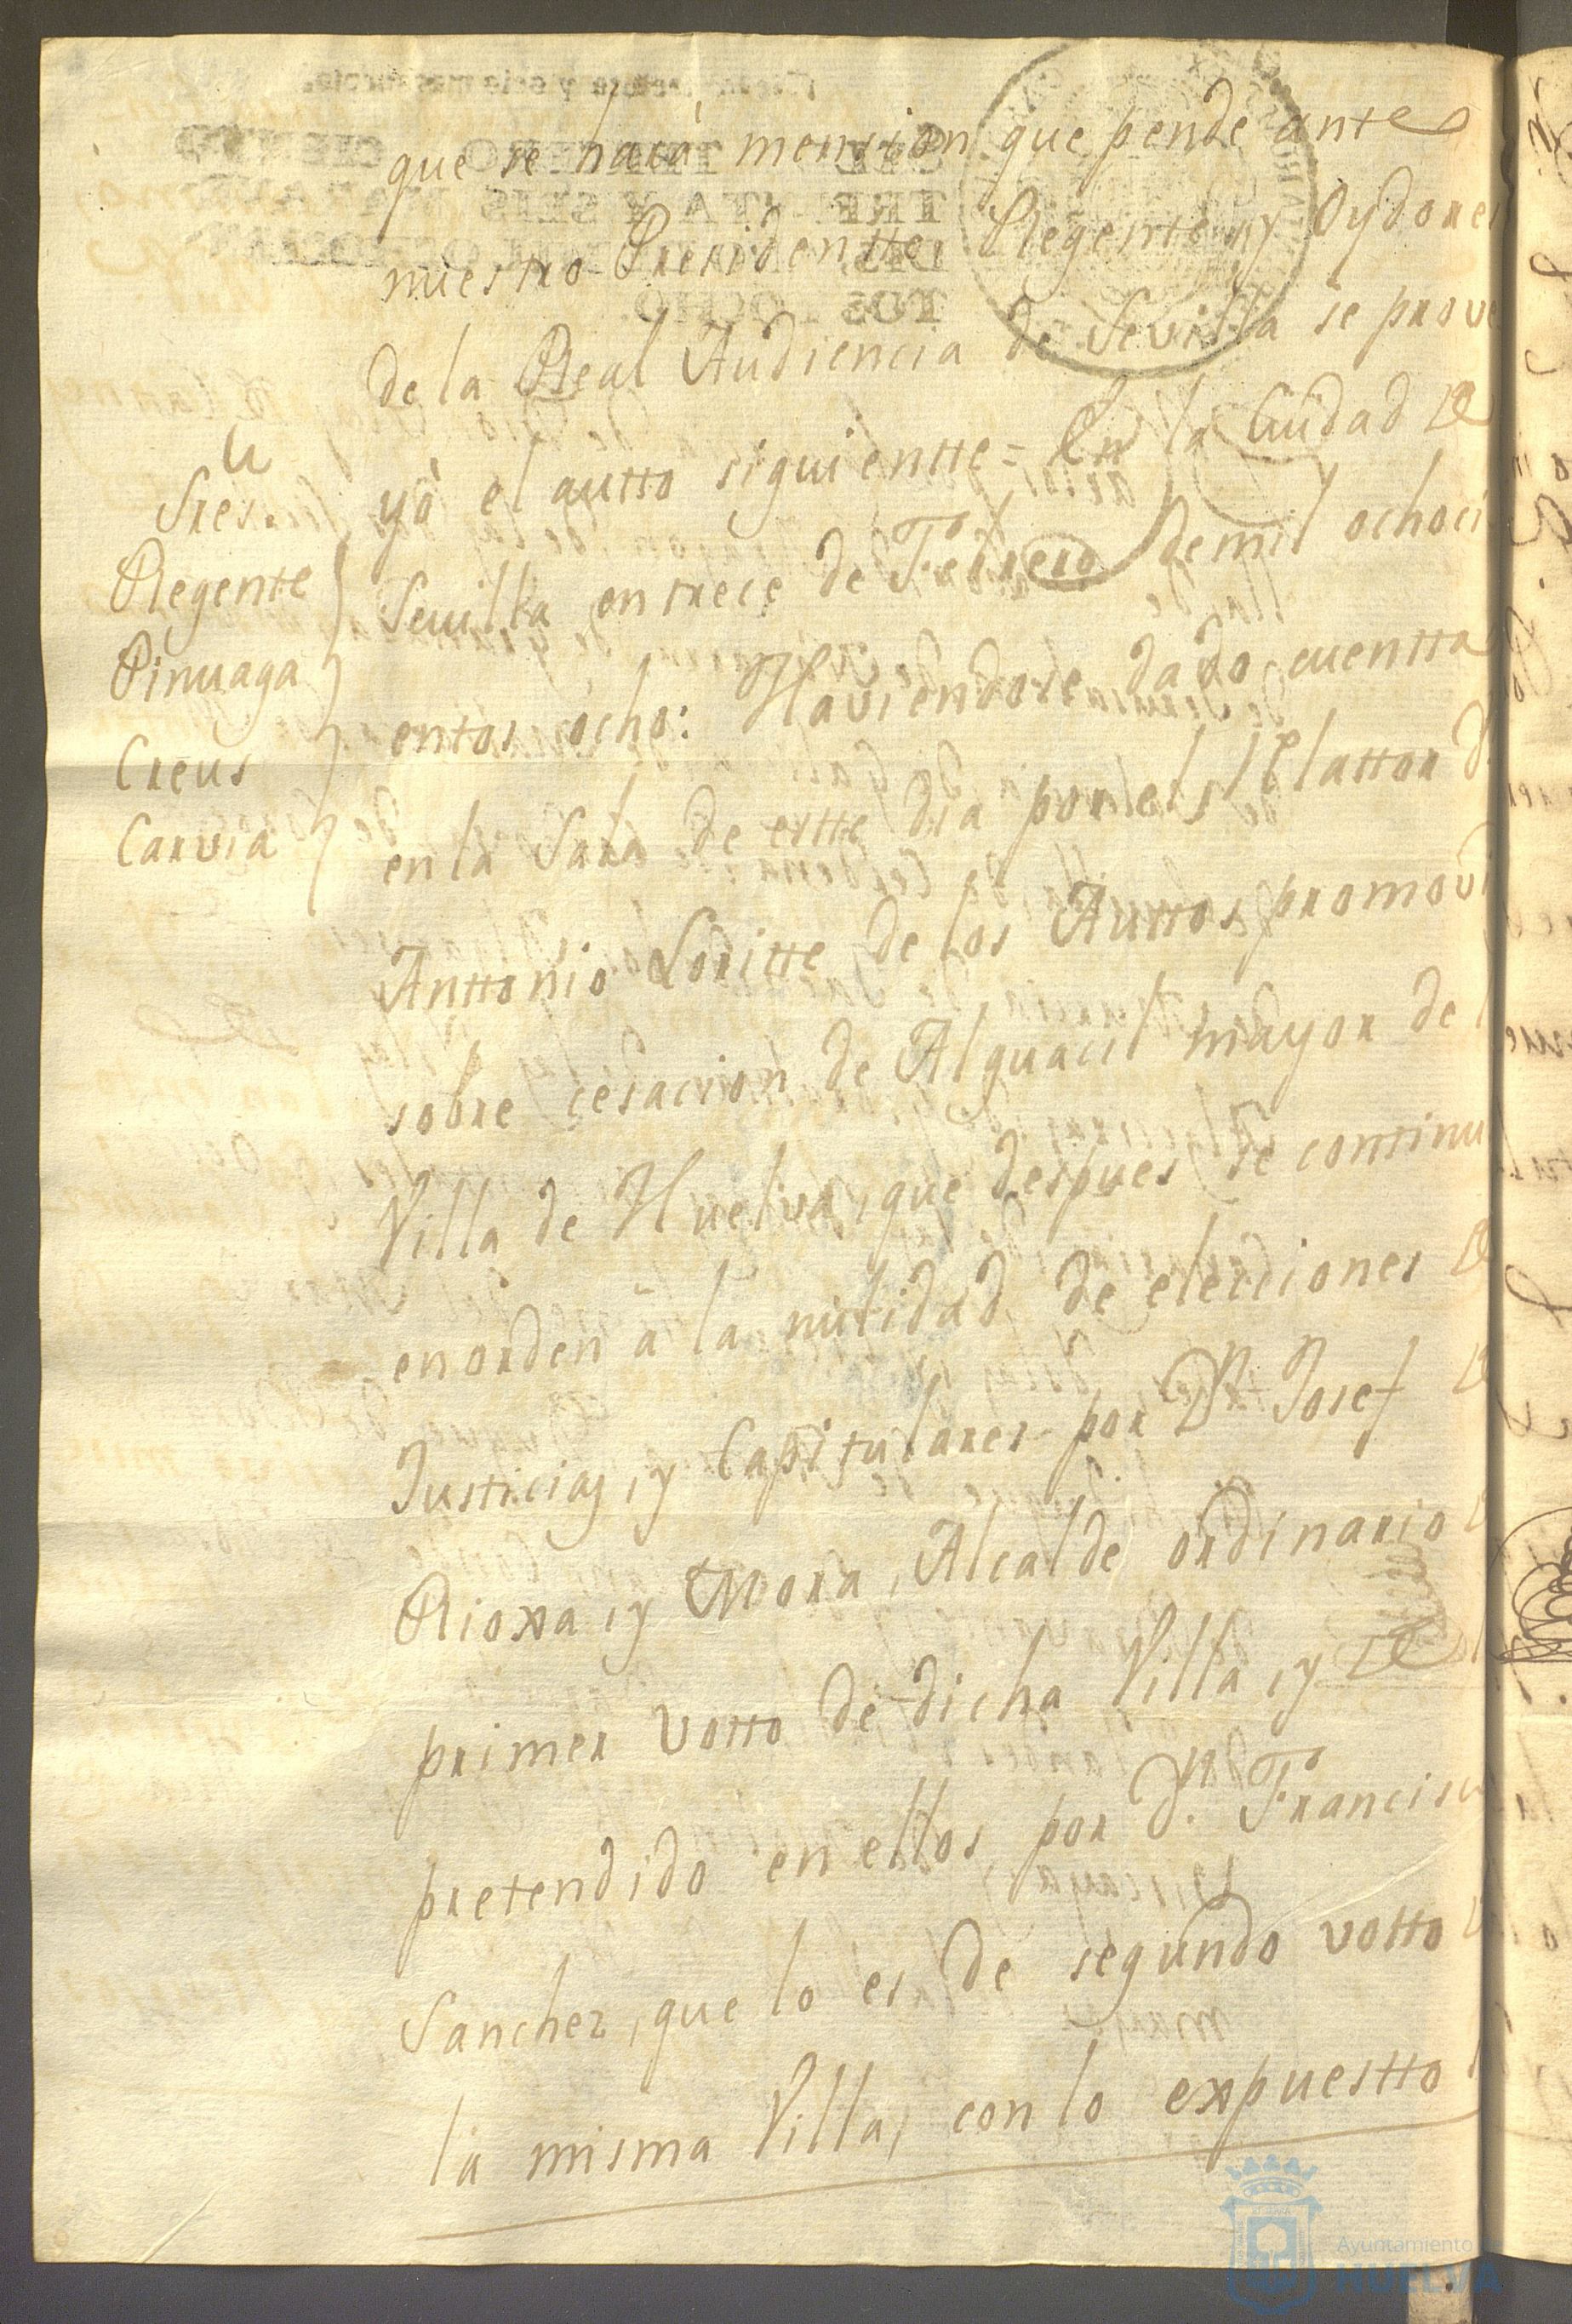 que se hará mension que pende ante
nuestro Presidentte Regente, y Oydores
de la Real Audiencia de Sevilla se prove
Sres.
Regente
Pinuaga
Creus
Carvia
yó el autto siguientte = En la Ciudad de
Sevilla en trece de Febrero de mil ochoci
entos ocho: Haviendose dado cuentta
en la Sala de estte dia por el Relattor D.
Anttonio Loritte de los Auttos promovi
sobre cesacion de Alguacil mayor de l
Villa de Huelva, que despues se continu
en orden à la nulidad de elecciones de
Justicias, y Capitulares por Dn. Josef de
Rioxa, y Mora, Alcalde ordinario de
primer votto de dicha Villa, y de lo
pretendido en ellos, por Dn. Francisco
Sanchez, que lo es de segundo votto de
la misma Villa, con lo expuestto
Ayuntamiento
HUELVA